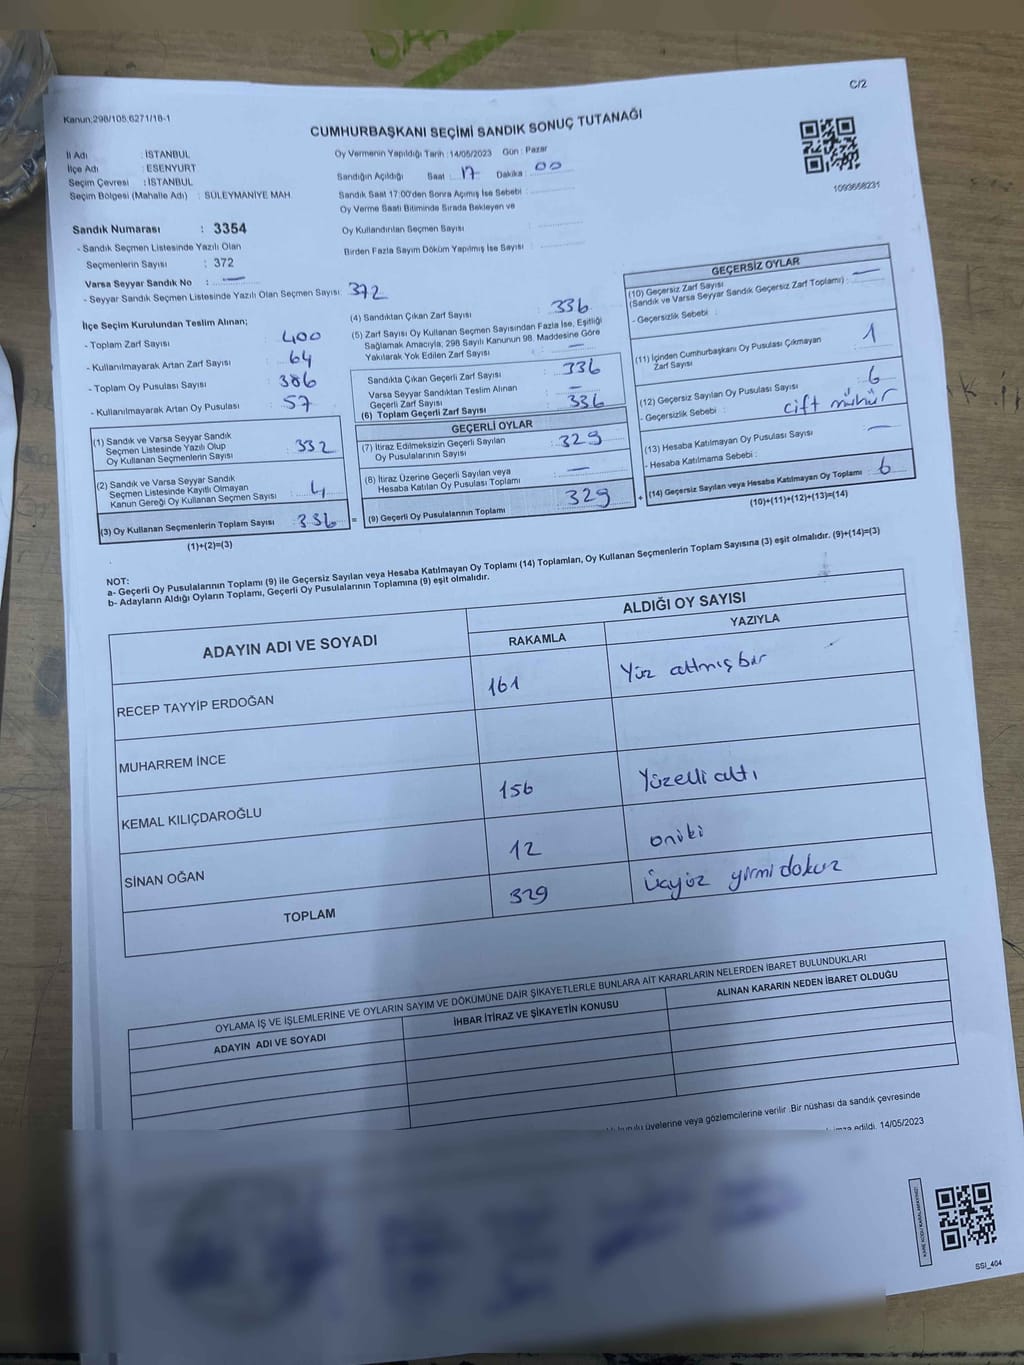 C/2
Kanun:298/105,6271/18-1
CUMHURBAŞKANI SEÇİMİ SANDIK SONUÇ TUTANAĞI
İl Adı : İSTANBUL
İlçe Adı : ESENYURT
Seçim Çevresi : İSTANBUL
Seçim Bölgesi (Mahalle Adı) : SÜLEYMANİYE MAH
Oy Vermenin Yapıldığı Tarih : 14/05/2023 Gün : Pazar
Sandığın Açıldığı Saat : 17 Dakika : 00
Sandık Saat 17:00'den Sonra Açılmış İse Sebebi :
Oy Verme Saati Bitiminde Sırada Bekleyen ve
Oy Kullandırılan Seçmen Sayısı :
Birden Fazla Sayım Döküm Yapılmış İse Sayısı :
1093658231
Sandık Numarası : 3354
- Sandık Seçmen Listesinde Yazılı Olan
Seçmenlerin Sayısı : 372
Varsa Seyyar Sandık No : —
- Seyyar Sandık Seçmen Listesinde Yazılı Olan Seçmen Sayısı : 372
İlçe Seçim Kurulundan Teslim Alınan;
- Toplam Zarf Sayısı : 400
- Kullanılmayarak Artan Zarf Sayısı : 64
- Toplam Oy Pusulası Sayısı : 386
- Kullanılmayarak Artan Oy Pusulası : 57
(1) Sandık ve Varsa Seyyar Sandık
Seçmen Listesinde Yazılı Olup
Oy Kullanan Seçmenlerin Sayısı : 332
(2) Sandık ve Varsa Seyyar Sandık
Seçmen Listesinde Kayıtlı Olmayan
Kanun Gereği Oy Kullanan Seçmen Sayısı : 4
(3) Oy Kullanan Seçmenlerin Toplam Sayısı : 336 =
(1)+(2)=(3)
(4) Sandıktan Çıkan Zarf Sayısı : 336
(5) Zarf Sayısı Oy Kullanan Seçmen Sayısından Fazla İse, Eşitliği
Sağlamak Amacıyla, 298 Sayılı Kanunun 98. Maddesine Göre
Yakılarak Yok Edilen Zarf Sayısı : —
Sandıkta Çıkan Geçerli Zarf Sayısı : 336
Varsa Seyyar Sandıktan Teslim Alınan
Geçerli Zarf Sayısı : —
(6) Toplam Geçerli Zarf Sayısı : 336
GEÇERLİ OYLAR
(7) İtiraz Edilmeksizin Geçerli Sayılan
Oy Pusulalarının Sayısı : 329
(8) İtiraz Üzerine Geçerli Sayılan veya
Hesaba Katılan Oy Pusulası Toplamı : —
(9) Geçerli Oy Pusulalarının Toplamı : 329 +
GEÇERSİZ OYLAR
(10) Geçersiz Zarf Sayısı
(Sandık ve Varsa Seyyar Sandık Geçersiz Zarf Toplamı) : —
- Geçersizlik Sebebi :
(11) İçinden Cumhurbaşkanı Oy Pusulası Çıkmayan
Zarf Sayısı : 1
(12) Geçersiz Sayılan Oy Pusulası Sayısı : 6
- Geçersizlik Sebebi : çift mühür
(13) Hesaba Katılmayan Oy Pusulası Sayısı : —
- Hesaba Katılmama Sebebi :
(14) Geçersiz Sayılan veya Hesaba Katılmayan Oy Toplamı : 6
(10)+(11)+(12)+(13)=(14)
NOT:
a- Geçerli Oy Pusulalarının Toplamı (9) ile Geçersiz Sayılan veya Hesaba Katılmayan Oy Toplamı (14) Toplamları, Oy Kullanan Seçmenlerin Toplam Sayısına (3) eşit olmalıdır. (9)+(14)=(3)
b- Adayların Aldığı Oyların Toplamı, Geçerli Oy Pusulalarının Toplamına (9) eşit olmalıdır.
ADAYIN ADI VE SOYADI
ALDIĞI OY SAYISI
RAKAMLA YAZIYLA
RECEP TAYYİP ERDOĞAN 161 Yüz altmış bir
MUHARREM İNCE
KEMAL KILIÇDAROĞLU 156 Yüzelli altı
SİNAN OĞAN 12 oniki
TOPLAM 329 üçyüz yirmi dokuz
OYLAMA İŞ VE İŞLEMLERİNE VE OYLARIN SAYIM VE DÖKÜMÜNE DAİR ŞİKAYETLERLE BUNLARA AİT KARARLARIN NELERDEN İBARET BULUNDUKLARI
ADAYIN ADI VE SOYADI İHBAR İTİRAZ VE ŞİKAYETİN KONUSU ALINAN KARARIN NEDEN İBARET OLDUĞU
üyelerine veya gözlemcilerine verilir .Bir nüshası da sandık çevresinde
edildi. 14/05/2023
SSI_404